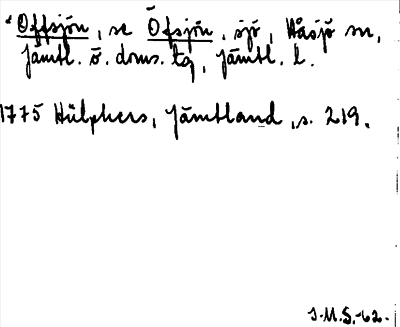 *Offsjön, se Öfsjön, sjö, Håsjö sn,
Jämtl. ö. doms. tg, Jämtl. l.
1775 Hülphers, Jämtland, s. 219.
J.M.S.-62.